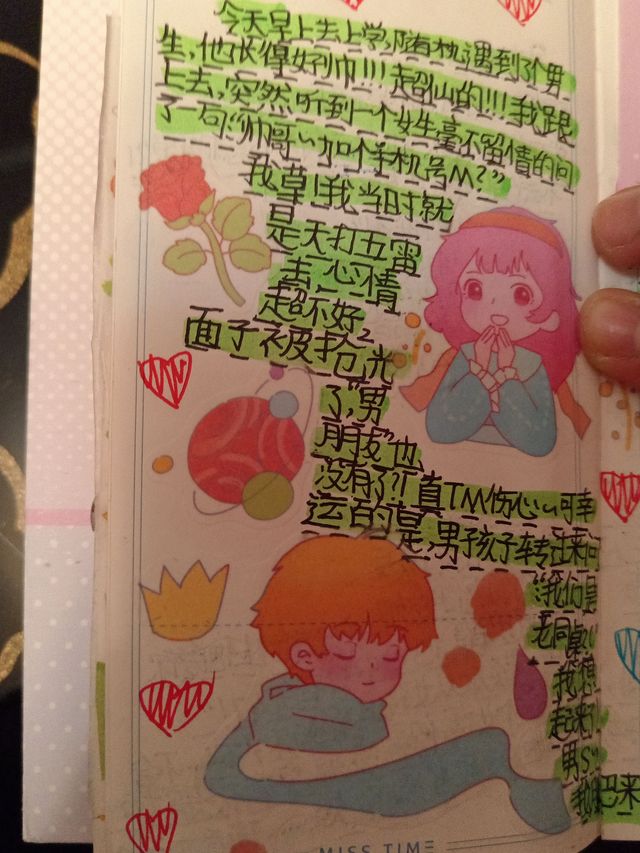 今天早上去上学,随机遇到了个男
生,他长得好帅!!!超山的!!!我跟
上去,突然听到一个女生毫不留情的问
了一句:“帅哥~加个手机号M?”
我草!我当时就
是天打五雷
击,心情
超不好,
面子被抢光
了,“男
朋友”也
没有了?!真TM伤心~可幸
运的是,男孩子转过来问
“我们是
老同桌!
我想
起来
男S
把来
MISS TIME